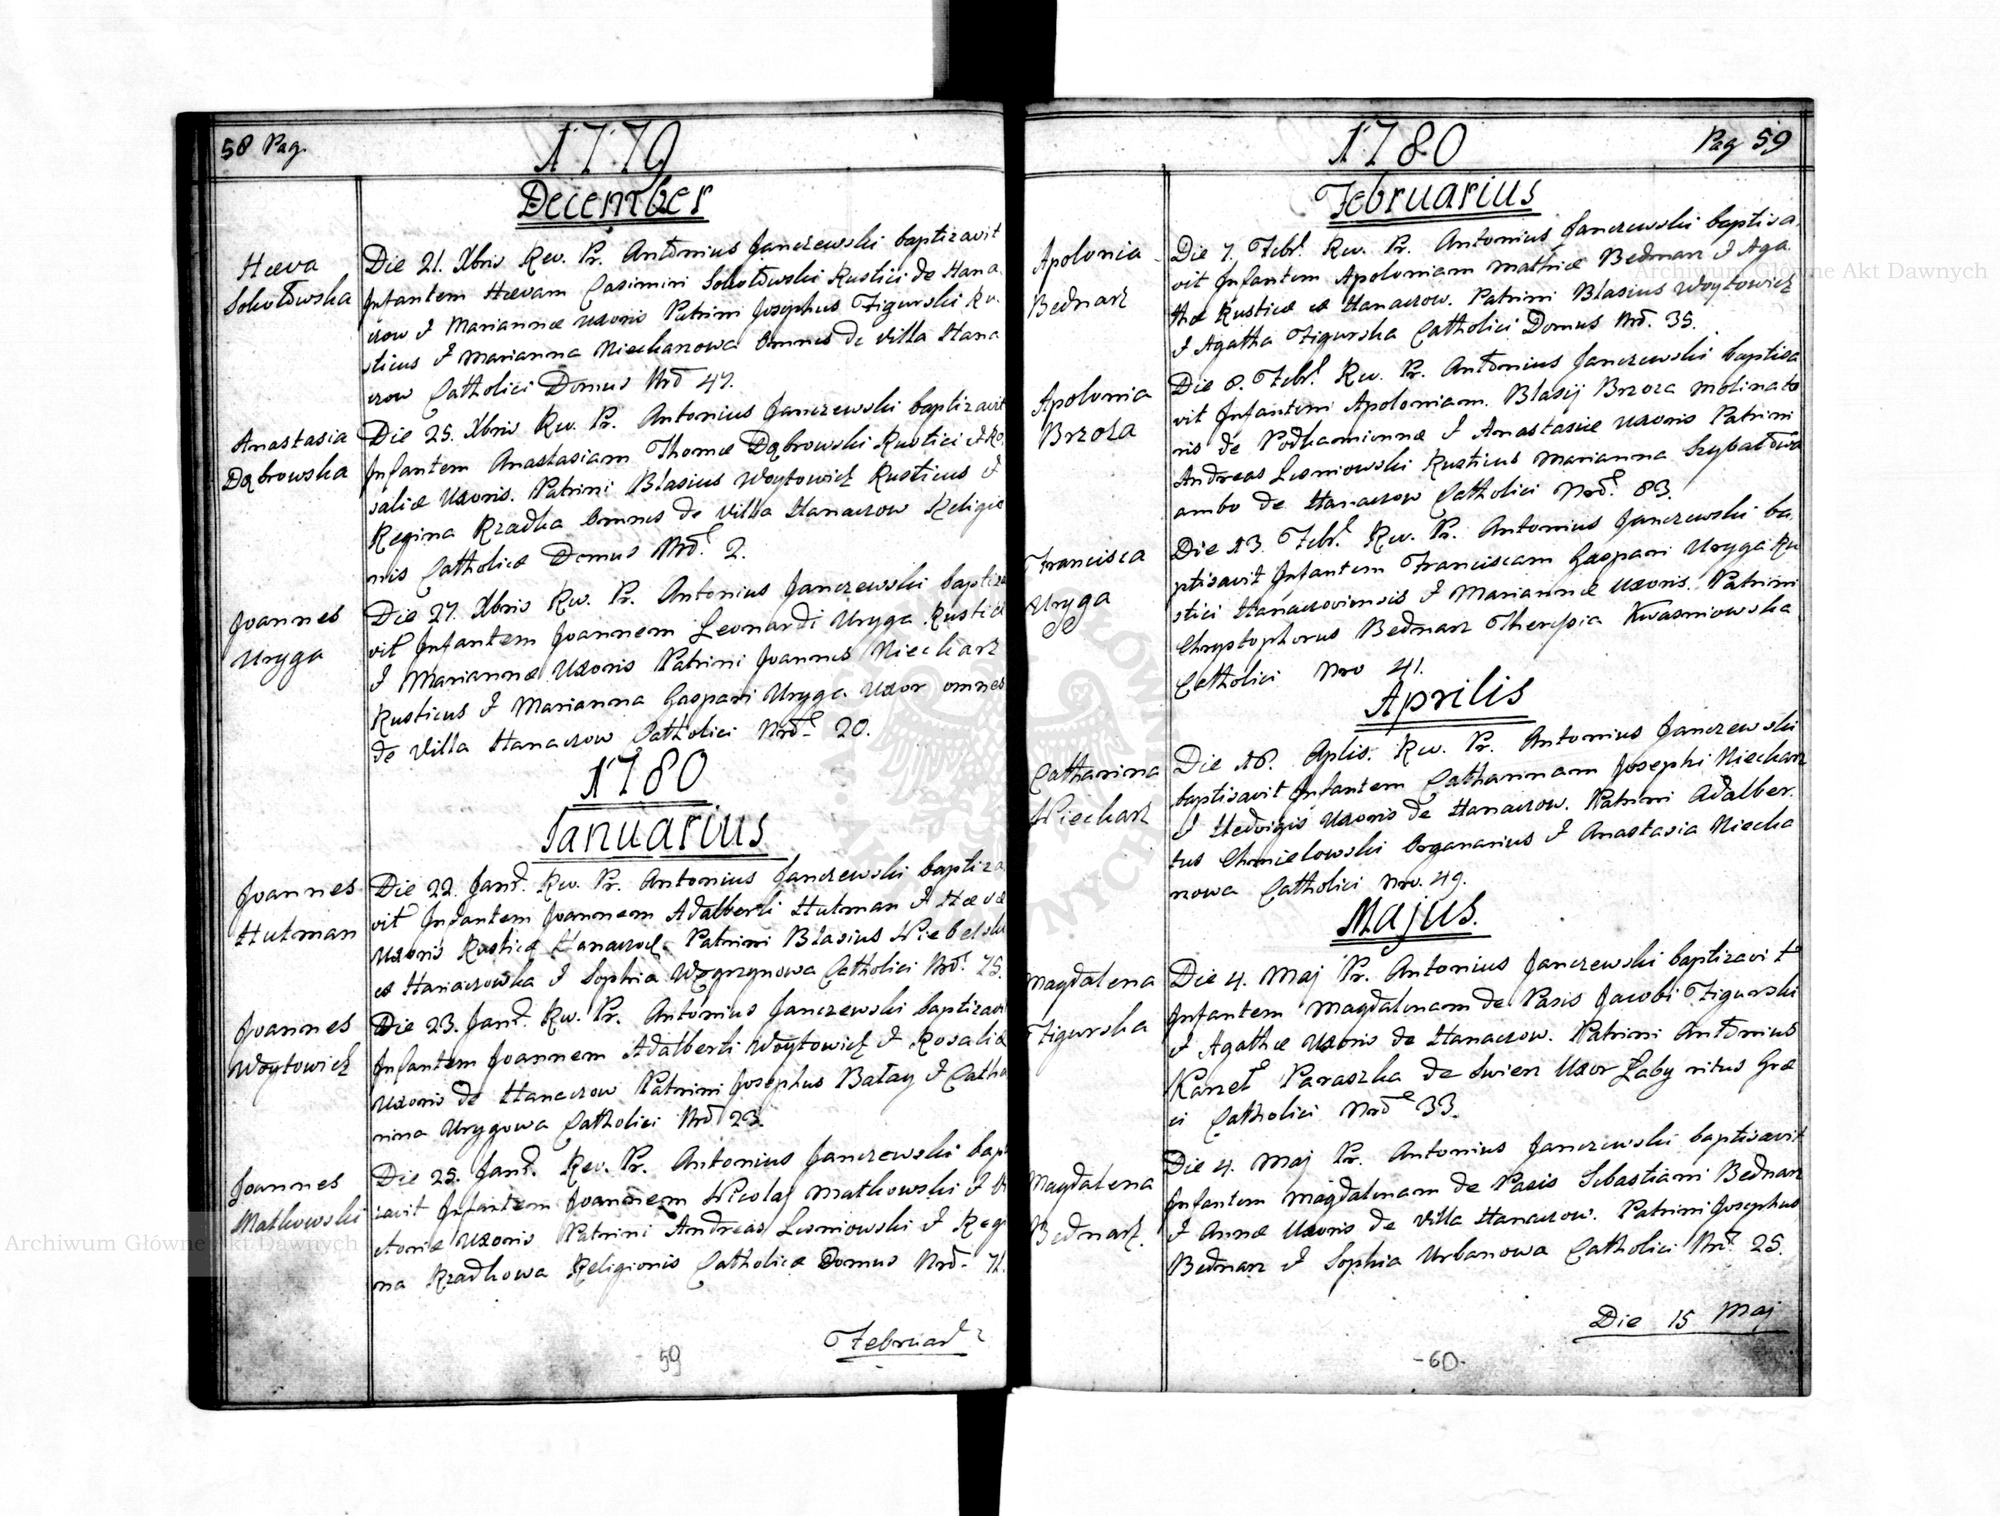 58 Pag.
1779
December
Hæva
Sokołowska
Die 21. Xbris Rev. Pr. Antonius Janczewski baptizavit
Infantem Hævam Casimiri Sokołowski Rustici de Hana
czow & Mariannæ Uxoris Patrini Josephus Figurski Ru
sticus & Marianna Niecharzowa Omnes de Villa Hana
czow Catholici Domus Nrō 47.
Anastasia
Dąbrowska
Die 25. Xbris Rev. Pr. Antonius Janczewski baptizavit
Infantem Anastasiam Thomæ Dąbrowski Rustici & Ro
saliæ Uxoris. Patrini Blasius Woytowicz Rusticus &
Regina Rzadka Omnes de Villa Hanaczow Religio
nis Catholicæ Domus Nrō. 2.
Joannes
Uryga
Die 27. Xbris Rev. Pr. Antonius Janczewski baptiza
vit Infantem Joannem Leonardi Uryga Rustici
& Mariannæ Uxoris Patrini Joannes Niecharz
Rusticus & Marianna Gaspari Uryga Uxor omnes
de Villa Hanaczow Catholici Nrō 20.
1780
Januarius
Joannes
Hutman
Die 22. Janr. Rev. Pr. Antonius Janczewski baptiza
vit Infantem Joannem Adalberti Hutman & Hævæ
Uxoris Patrini Blasius Niebelski
es Hanaczowka & Sophia Węgrzynowa Catholici Nrō. 75.
Joannes
Woytowicz
Die 23. Janr. Rev. Pr. Antonius Janczewski baptizavi
Infantem Joannem Adalberti Woytowicz & Rosaliæ
Uxoris de Hanaczow Patrini Josephus Bałay & Catha
rina Urygowa Catholici Nrō 23.
Joannes
Matkowski
Die 25. Janr. Rev. Pr. Antonius Janczewski bapti
zavit Infantem Joannem Nicolaj Matkowski & Vi
ctoriæ Uxoris Patrini Andreas Lesniowski & Regi
na Rzadkowa Religionis Catholicæ Domus Nrō. 71.
Februar
59
1780
Pag 59
Februarius
Apolonia
Bednarz
Die 7. Febr. Rev. Pr. Antonius Janczewski baptisa
vit Infantem Apoloniam Mathiæ Bednarz & Aga
thæ Rusticæ es Hanaczow. Patrini Blasius Woytowicz
& Agatha Figurska Catholici Domus Nrō. 35.
Apolonia
Brzoza
Die 8. Febr. Rev. Pr. Antonius Janczewski baptisa
vit Infantem Apoloniam. Blasij Brzoza Molinato
ris de Podkamienna & Anastasiæ Uxoris Patrini
Andreas Lesniowski Rusticus Marianna Szybałowa
ambo de Hanaczow Catholici Nrō. 83.
Francisca
Uryga
Die 13. Febr. Rev. Pr. Antonius Janczewski ba
ptisavit Infantem Franciscam Gaspari Uryga Ru
stici Hanaczoviensis & Mariannæ Uxoris. Patrini
Chryptophorus Bednarz Theresia Kwasniowska
Catholici Nro 41.
Aprilis
Catharina
Niecharz
Die 18. Aplis. Rev. Pr. Antonius Janczewski
baptisavit Infantem Catharinam Josephi Niecharz
& Hedvigis Uxoris de Hanaczow. Patrini Adalber
tus Chmielowski Organarius & Anastasia Niecha
rzowa Catholici Nro. 49.
Majus.
Magdalena
Figurska
Die 4. Maj Pr. Antonius Janczewski baptizavit
Infantem Magdalenam de Pasis Jacobi Figurski
& Agathæ Uxoris de Hanaczow. Patrini Antonius
Karzeł Paraszka de Swierz Uxor Żaby ritus Græ
ci Catholici Nrō 33.
Magdalena
Bednarz.
Die 4. Maj Pr. Antonius Janczewski baptisavit
Infantem Magdalenam de Pasis Sebastiani Bednarz
& Annæ Uxoris de Villa Hanaczow. Patrini Josephus
Bednarz & Sophia Urbanowa Catholici Nrō. 25.
Die 15 Maj
-60-
Archiwum Główne Akt Dawnych
Archiwum Główne Akt Dawnych